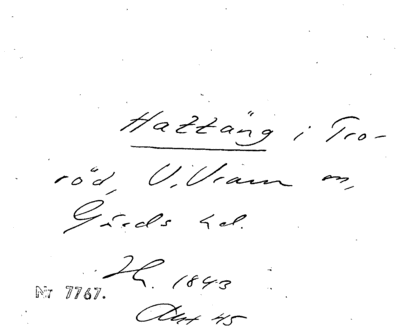 Hattäng i Tro-
röd, V. Vram sn,
Gärds hd.
1843
Nr 7767.
45